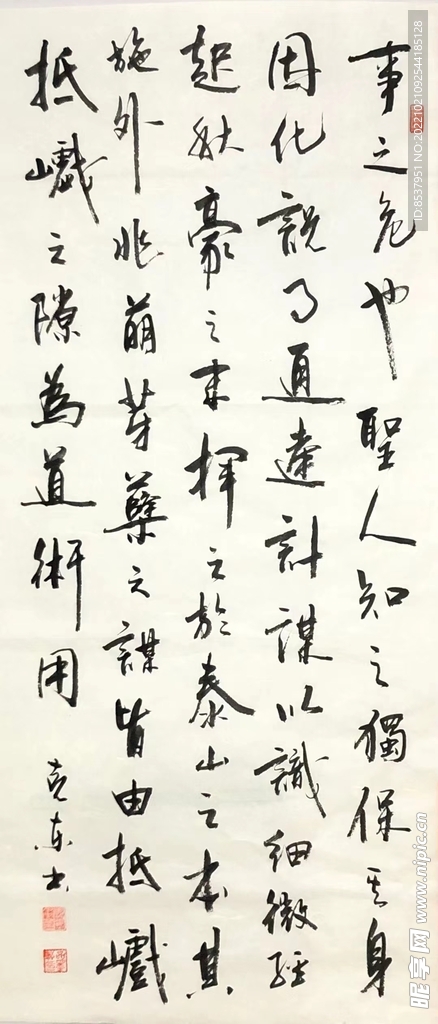 事之危也聖人知之獨保其身
因化說事通達計謀以識細微經
起秋豪之末揮之於泰山之本其
施外兆萌芽孽之謀皆由抵巇
抵巇之隙為道術用
克東书
ID:8537951 NO:20221021092544185128
昵享网 www.nipic.cn